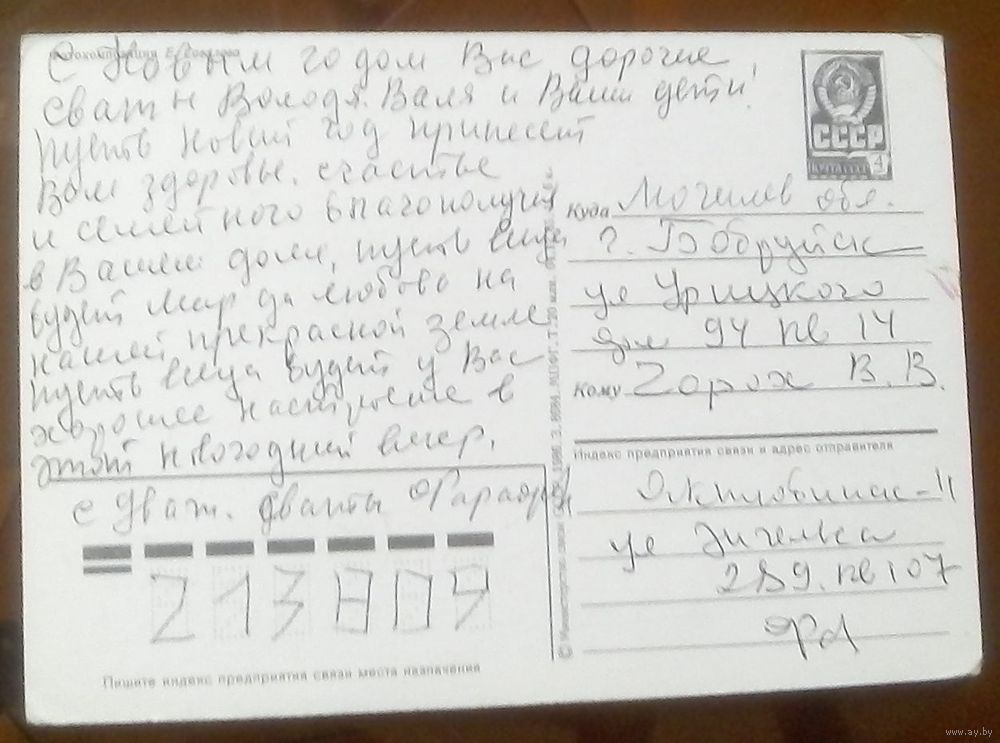 С Новым годом Вас дорогие
сваты Володя. Валя и Ваши дети!
Пусть новый год принесёт
Вам здоровье. счастье
и семейного благополучия
в Вашем доме, пусть
будет мир да любовь на
нашей прекрасной земле
пусть будет у Вас
хорошее в
этот вечер.
с Уваж.
213804
Пишите индекс предприятия связи места назначения
СССР
4
Куда Могилев обл.
г. Бобруйск
ул Урицкого
дом 94 кв 14
Кому В. В.
Индекс предприятия связи и адрес отправителя
Актюбинск-11
ул Энгельса
кв 107
© Министерство связи СССР
www.ay.by